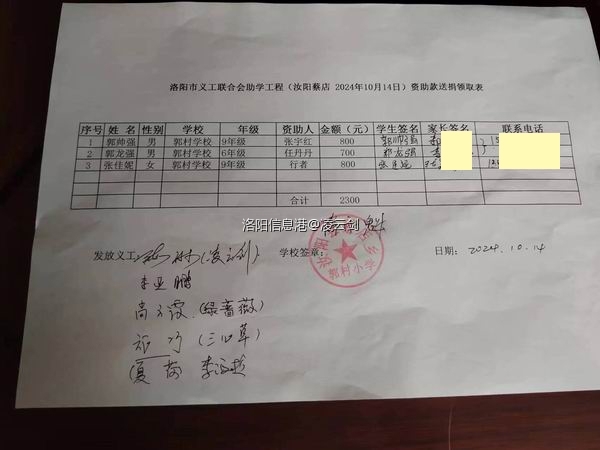 洛阳市义工联合会助学工程（汝阳蔡店 2024年10月14日）资助款送捐领取表
序号 姓 名 性别 学校 年级 资助人 金额（元） 学生签名 家长签名 联系电话
1 郭帅强 男 郭村学校 9年级 张宇红 800 郭帅强
2 郭龙强 男 郭村学校 6年级 任丹丹 700 郭龙强
3 张佳妮 女 郭村学校 9年级 行者 800 张佳妮
合计 2300
洛阳信息港@凌云剑
发放义工： (凌云剑) 学校签章： 郭村小学 日期： 2024.10.14
李亚鹏
(绿蔷薇)
(三心草)
(夏荷)